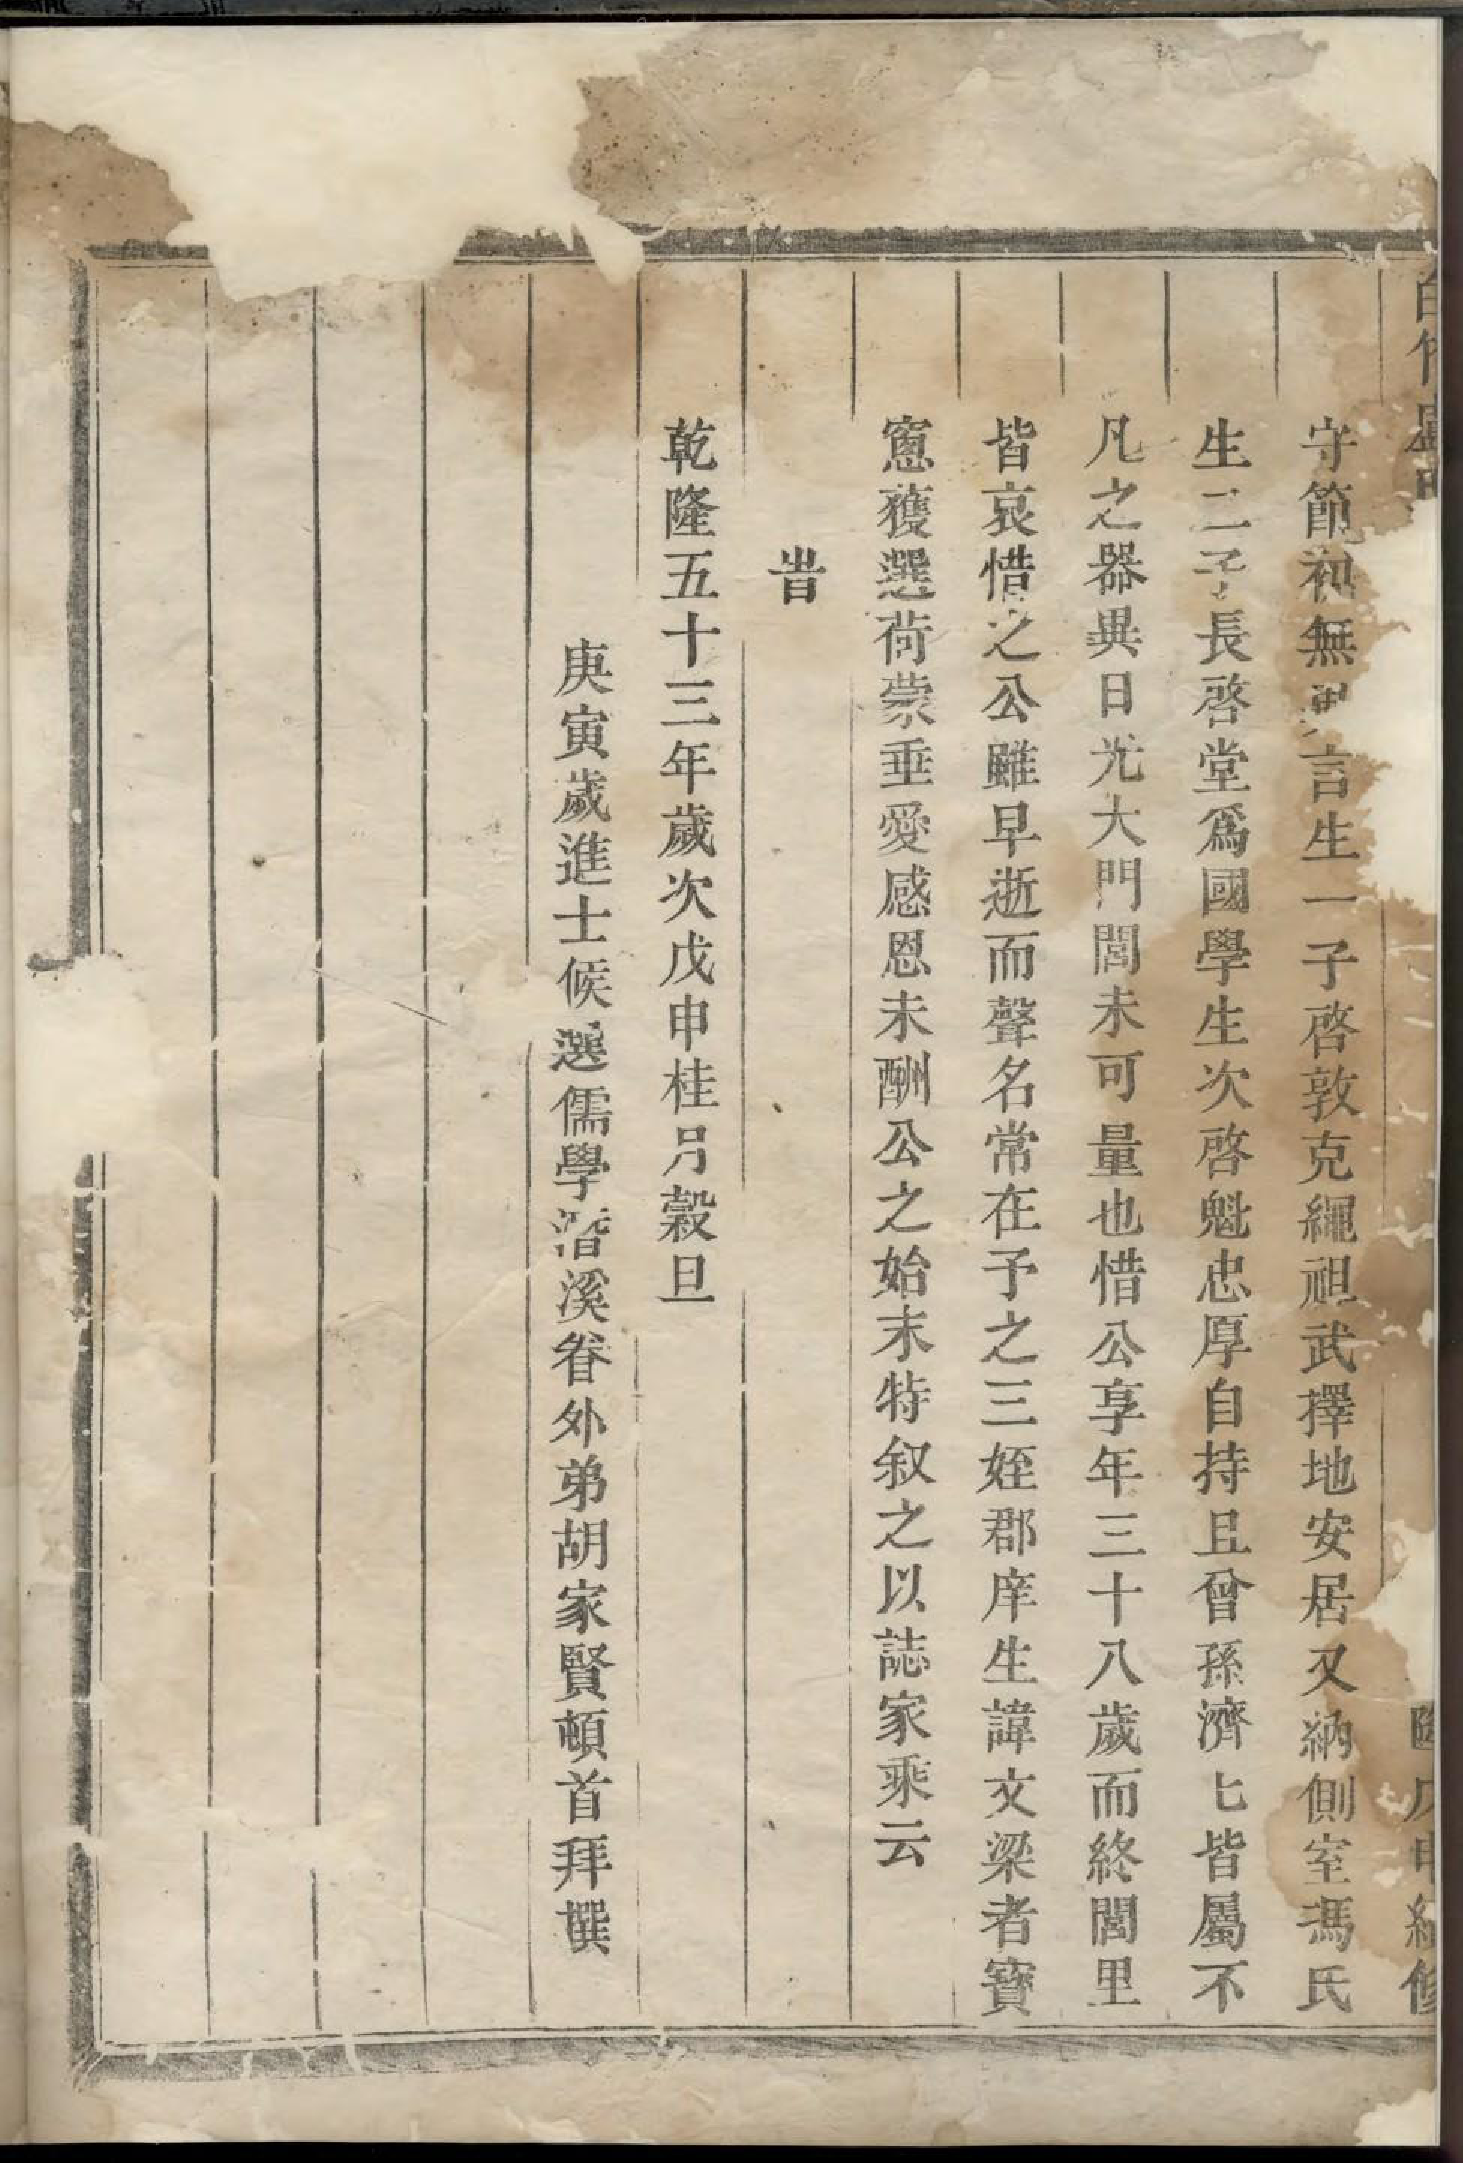 守節初無異言生一子啓敦克繩祖武擇地安居又納側室馮氏
生二子長啓堂爲國學生次啓魁忠厚自持且曾孫濟七皆屬不
凡之器異日光大門閭未可量也惜公享年三十八歲而終閭里
皆哀惜之公雖早逝而聲名常在予之三姪郡庠生諱文梁者寶
窻獲選荷蒙垂愛感恩未酬公之始末特叙之以誌家乘云
旹
乾隆五十三年歲次戊申桂月穀旦
庚寅歲進士候選儒學潛溪眷外弟胡家賢頓首拜撰